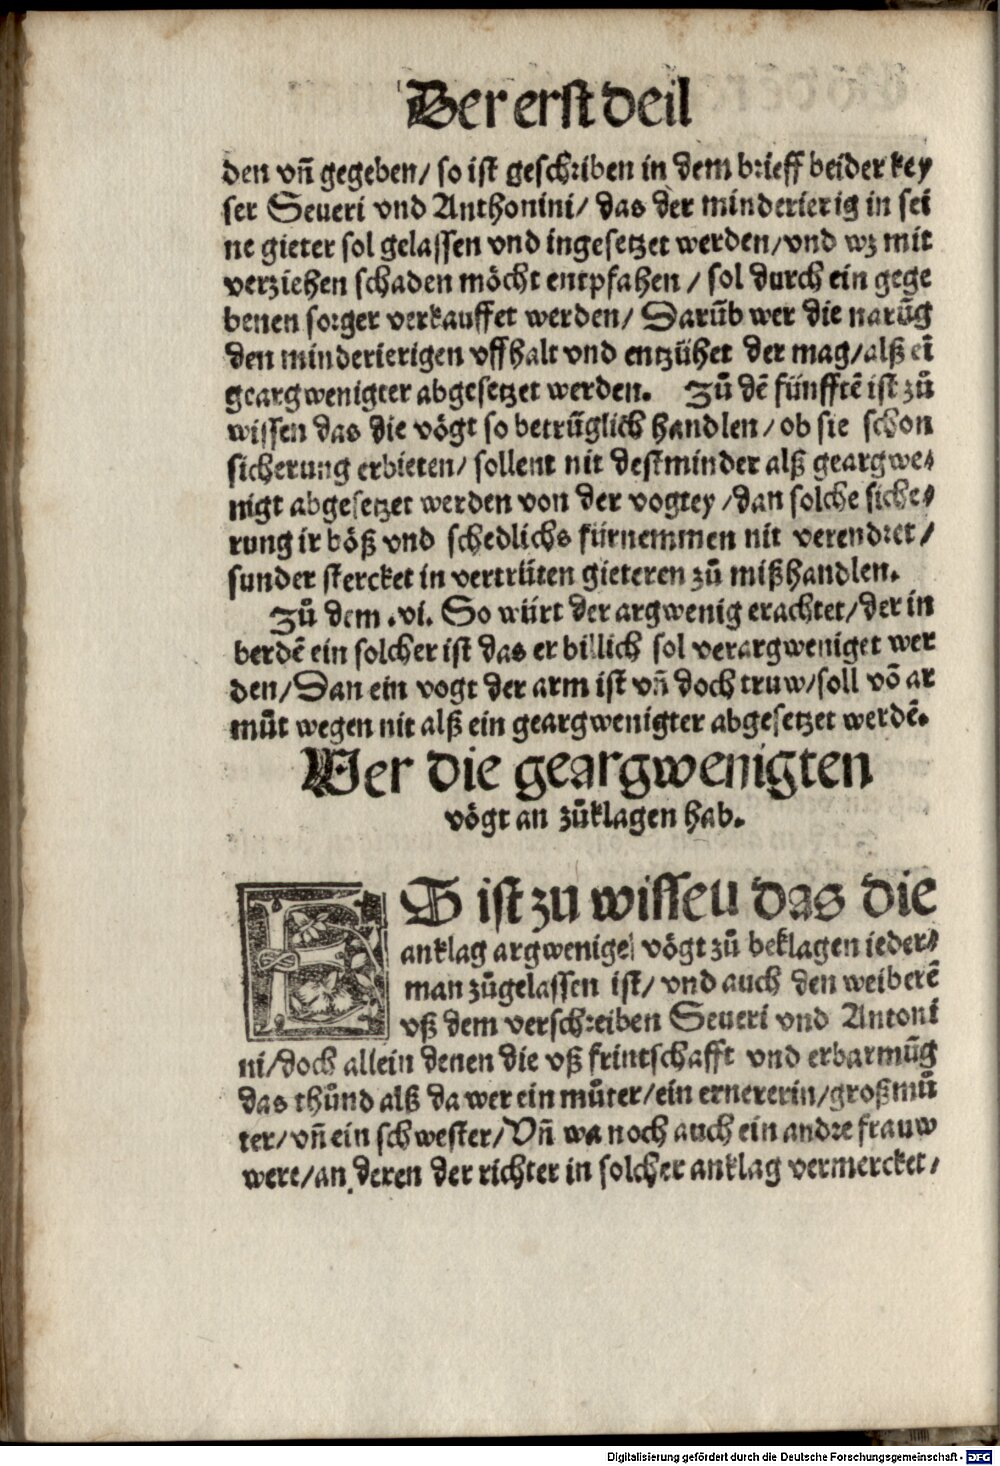 Der erst deil
den vn̄ gegeben/ so ist geschriben in dem brieff beider key
ser Seueri vnd Anthonini/ das der minderierig in sei
ne gieter sol gelassen vnd ingesetzet werden/vnd wz mit
verziehen schaden möcht entpfahen / sol durch ein gege
benen sorger verkauffet werden/ Darūb wer die narūg
den minderierigen vffhalt vnd entzühet der mag/alß eī
geargwenigter abgesetzet werden. Zů dē fünfftē ist zů
wissen das die vögt so betrůglich handlen/ob sie schon
sicherung erbieten/ sollent nit destminder alß geargwe⸗
nigt abgesetzet werden von der vogtey /dan solche siche⸗
rung ir böß vnd schedlichs fürnemmen nit verendret/
sunder stercket in vertrüten gieteren zů mißhandlen.
Zů dem .vi. So würt der argwenig erachtet/der in
berdē ein solcher ist das er billich sol verargweniget wer
den/Dan ein vogt der arm ist vn̄ doch truw/soll vō ar
můt wegen nit alß ein geargwenigter abgesetzet werdē.
Wer die geargwenigten
vögt an zůklagen hab.
ES ist zu wisseu das die
anklag argwenige vögt zů beklagen ieder⸗
man zůgelassen ist/ vnd auch den weiberē
vß dem verschreiben Seueri vnd Antoni
ni/doch allein denen die vß frintschafft vnd erbarmūg
das thůnd alß da wer ein můter/ein ernererin/großmů
ter/vn̄ ein schwester/Vn̄ wa noch auch ein andre frauw
were/an deren der richter in solcher anklag vermercket/
Digitalisierung gefördert durch die Deutsche Forschungsgemeinschaft - DFG